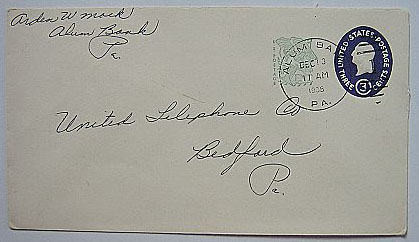 Arden W mock
Alum Bank
Pa.
ALUM BA
DEC 13
11 AM
PA.
UNITED STATES POSTAGE
THREE 3 CENTS
United Telephone Co
Bedford
Pa.